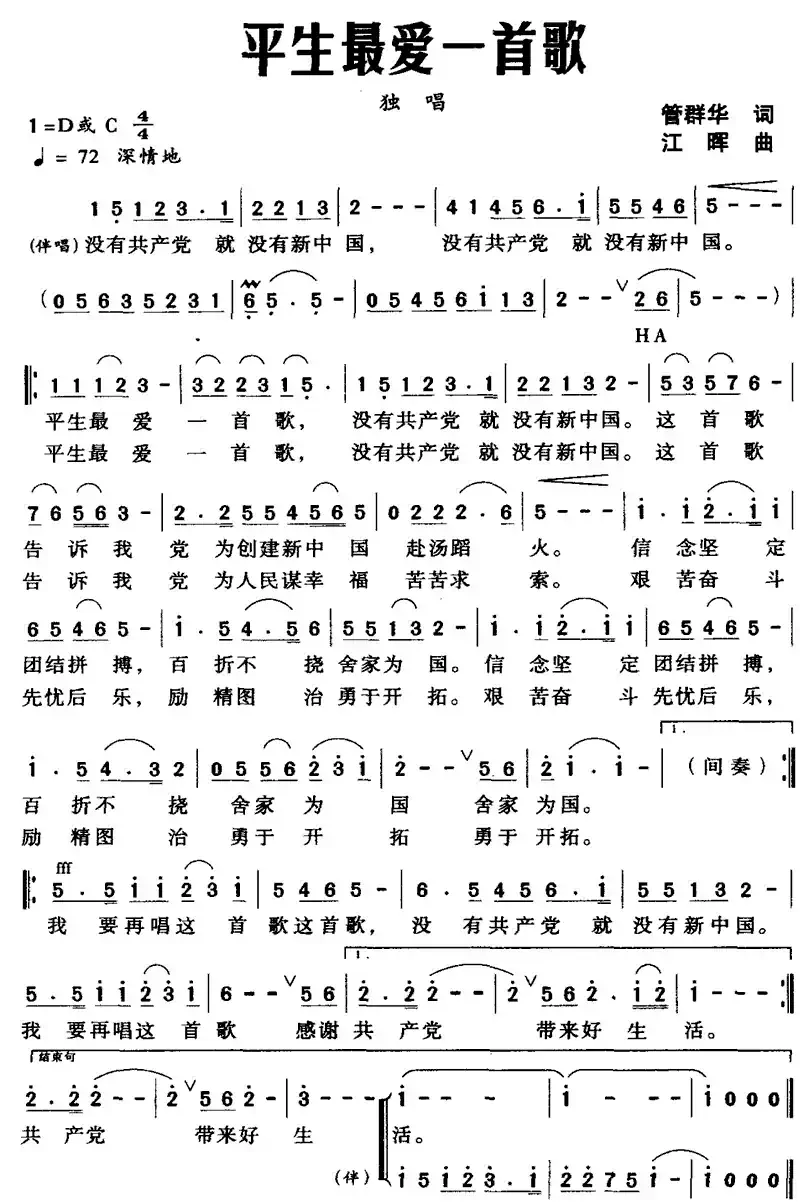 平生最爱一首歌
独 唱
1=D或 C 4/4
管群华 词
♩= 72 深情地
江 晖 曲
1 5 1 2 3 . 1 | 2 2 1 3 | 2 - - - | 4 1 4 5 6 . i | 5 5 4 6 | 5 - - - |
(伴唱) 没有共产党 就 没有新中 国， 没有共产党 就 没有新中 国。
( 0 5 6 3 5 2 3 1 | 6 5 . 5 - | 0 5 4 5 6 i 1 3 | 2 - - ∨ 2 6 | 5 - - - )
HA
1 1 1 2 3 - | 3 2 2 3 1 5 . | 1 5 1 2 3 . 1 | 2 2 1 3 2 - | 5 3 5 7 6 - |
平生最 爱 一 首 歌， 没有共产党 就 没有新中国。 这 首 歌
平生最 爱 一 首 歌， 没有共产党 就 没有新中国。 这 首 歌
7 6 5 6 3 - | 2 . 2 5 5 4 5 6 5 | 0 2 2 2 . 6 | 5 - - - | i . i 2 . i i |
告 诉 我 党 为创建新中 国 赴汤蹈 火。 信 念坚 定
告 诉 我 党 为人民谋幸 福 苦苦求 索。 艰 苦奋 斗
6 5 4 6 5 - | i . 5 4 . 5 6 | 5 5 1 3 2 - | i . i 2 . i i | 6 5 4 6 5 - |
团结拼 搏， 百 折不 挠 舍家为 国。 信 念坚 定 团结拼 搏，
先忧后 乐， 励 精图 治 勇于开 拓。 艰 苦奋 斗 先忧后 乐，
1.
i . 5 4 . 3 2 | 0 5 5 6 2 3 i | 2 - - ∨ 5 6 | 2 i . i - | (间奏) :‖
百 折不 挠 舍家 为 国 舍家 为国。
励 精图 治 勇于 开 拓 勇于 开拓。
fff
5 . 5 i i 2 3 i | 5 4 6 5 - | 6 . 5 4 5 6 . i | 5 5 1 3 2 - |
我 要再唱这 首 歌这首歌， 没 有共产党 就 没有新中国。
1.
5 . 5 i i 2 3 i | 6 - - ∨ 5 6 | 2 . 2 2 - - | 2 ∨ 5 6 2 . i 2 | i - - - :‖
我 要再唱这 首 歌 感谢 共 产党 带来好 生 活。
结束句
2 . 2 2 - - | 2 ∨ 5 6 2 - | 3 - - - | i - - - | i - - - | i 0 0 0 ‖
共 产党 带来好 生 活。
(伴) i 5 i 2 3 . i | 2 2 7 5 i - | i 0 0 0 ‖